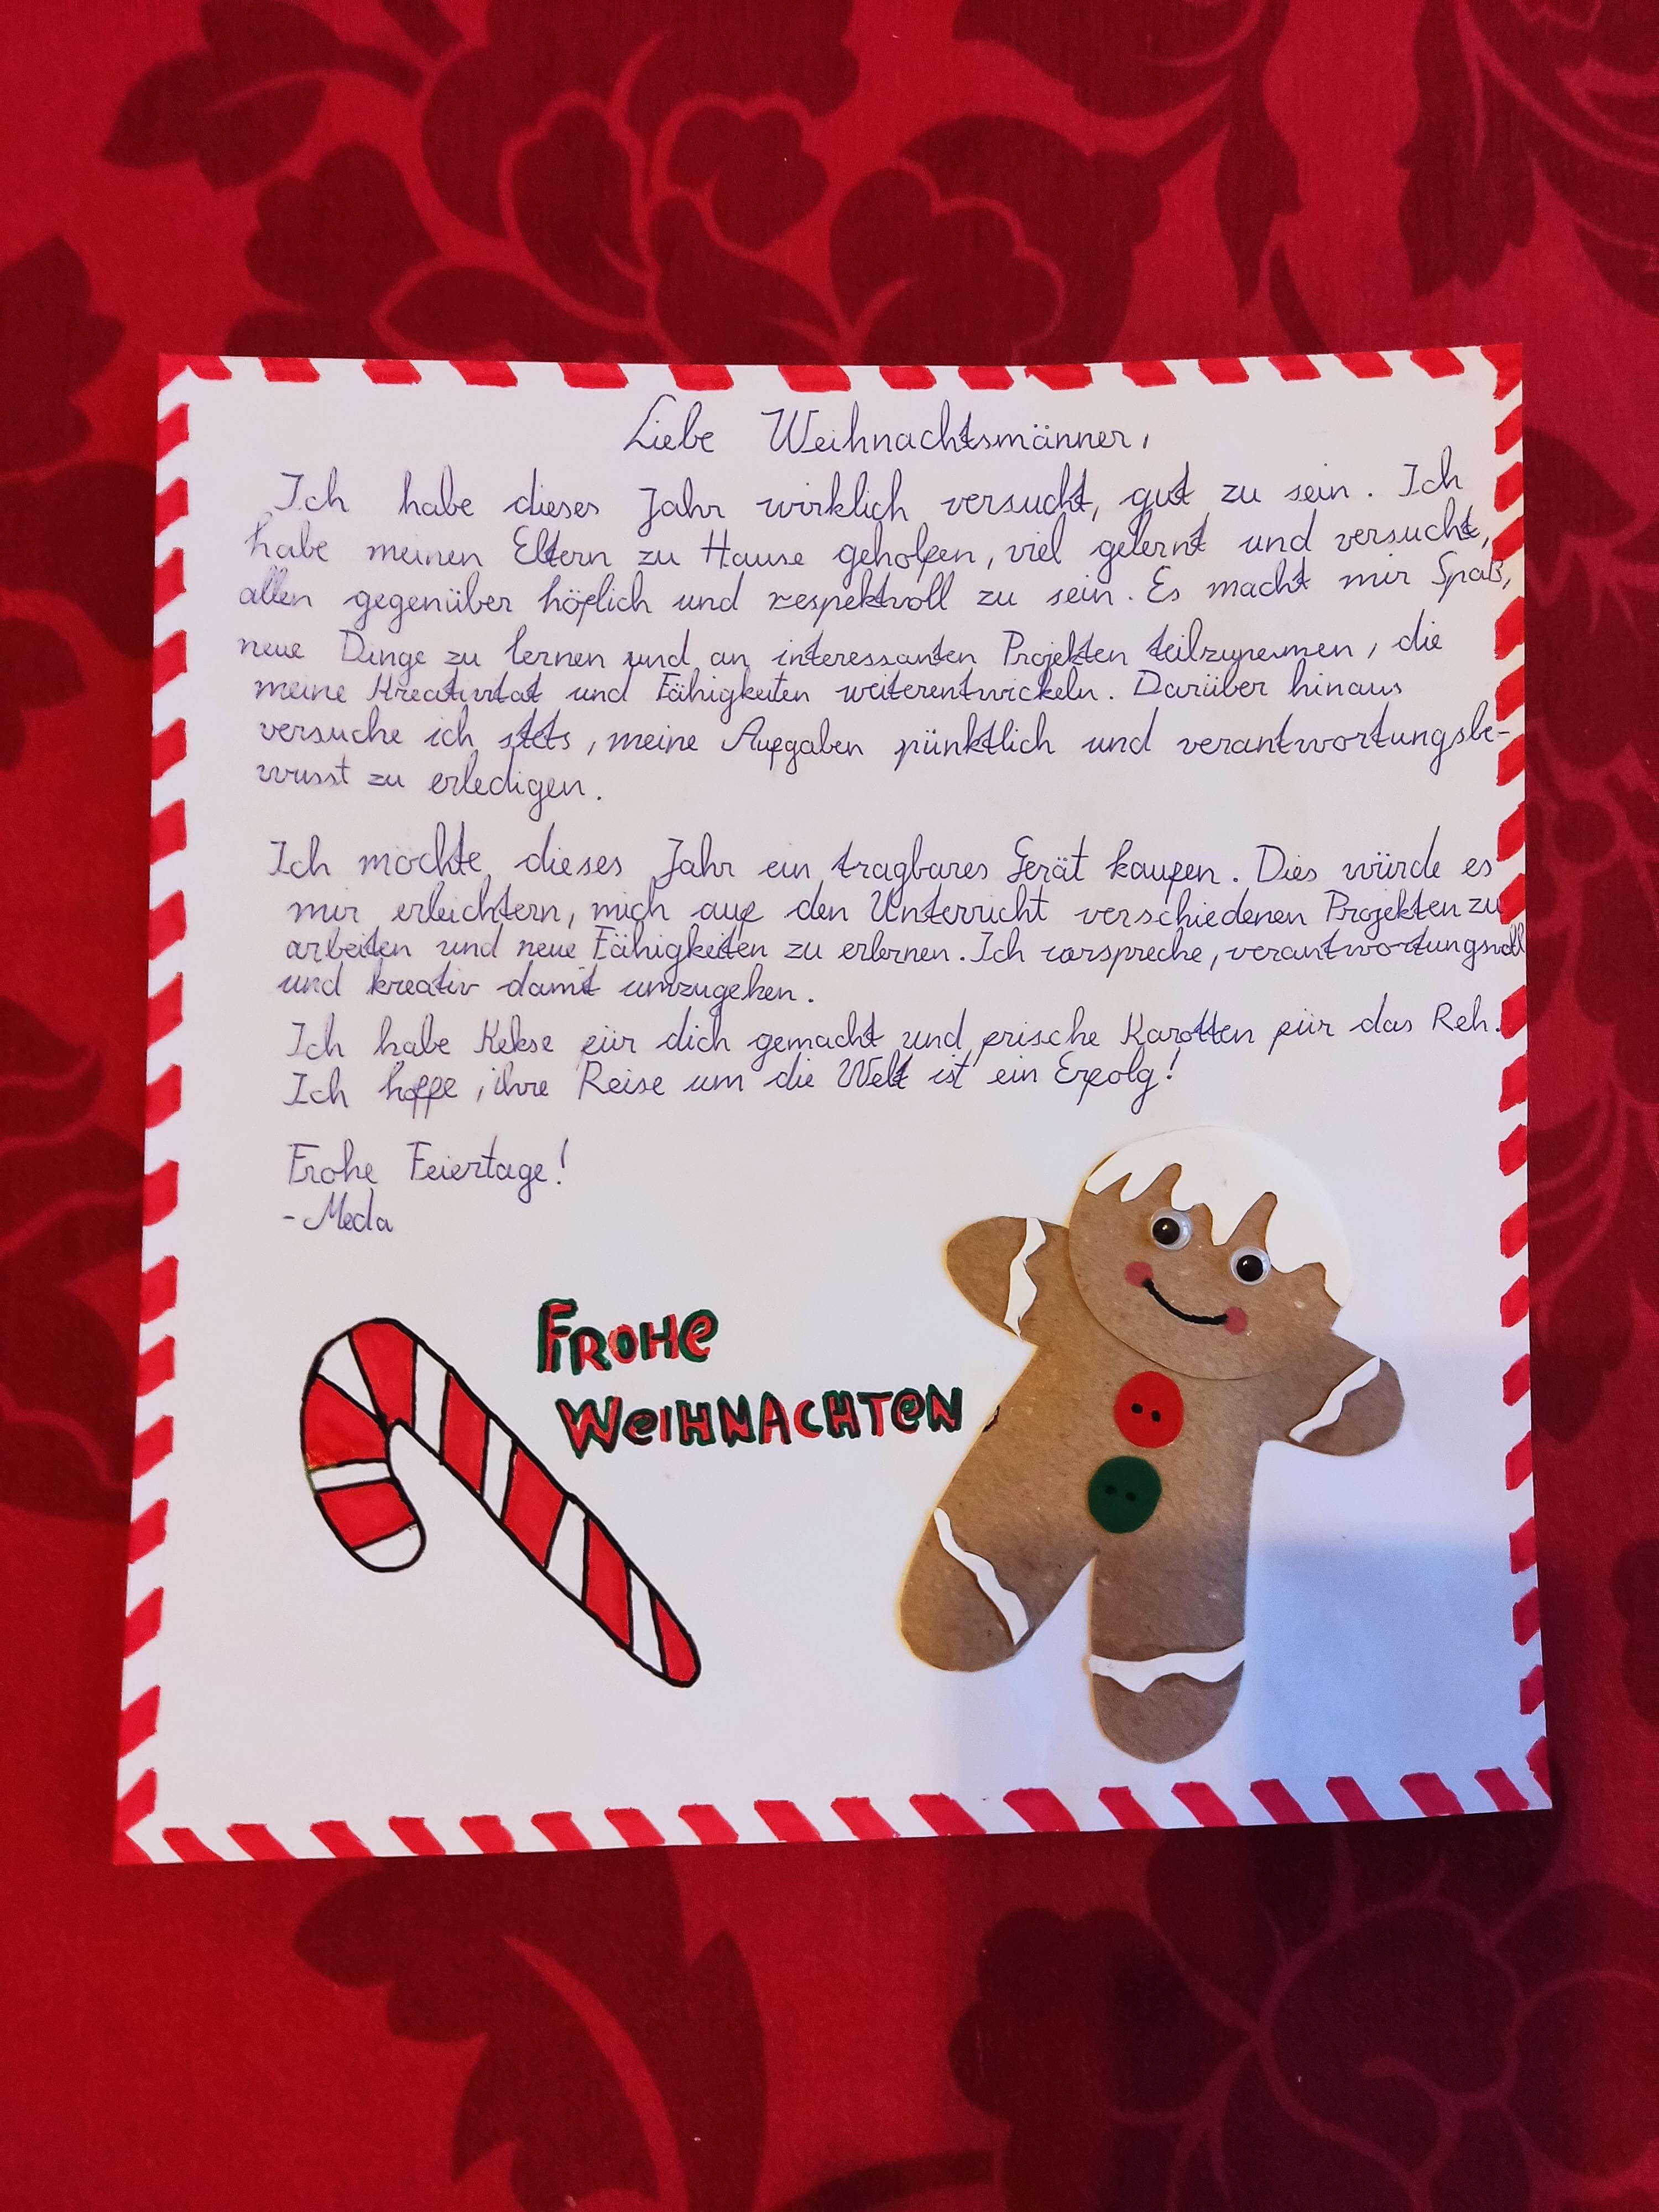 Liebe Weihnachtsmänner,
Ich habe dieses Jahr wirklich versucht, gut zu sein. Ich
habe meinen Eltern zu Hause geholfen, viel gelernt und versucht,
allen gegenüber höflich und respektvoll zu sein. Es macht mir Spaß,
neue Dinge zu lernen und an interessanten Projekten teilzunehmen, die
meine Kreativität und Fähigkeiten weiterentwickeln. Darüber hinaus
versuche ich stets, meine Aufgaben pünktlich und verantwortungsbe-
wusst zu erledigen.
Ich möchte dieses Jahr ein tragbares Gerät kaufen. Dies würde es
mir erleichtern, mich auf den Unterricht verschiedenen Projekten zu
arbeiten und neue Fähigkeiten zu erlernen. Ich verspreche, verantwortungsvoll
und kreativ damit umzugehen.
Ich habe Kekse für dich gemacht und frische Karotten für das Reh.
Ich hoffe, ihre Reise um die Welt ist ein Erfolg!
Frohe Feiertage!
- Meda
FROHe
WeIHNACHTeN